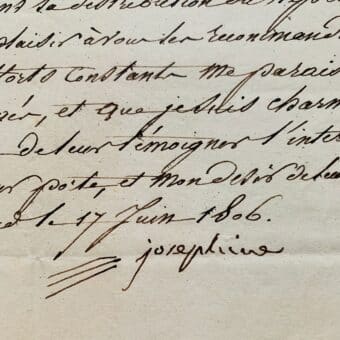 la distribution du
plaisir à vous les recommande
forts constants me parais
et que je suis charm
de leur témoigner l'inter
porte, et mon desir de leur
le 17 Juin 1806.
josephine